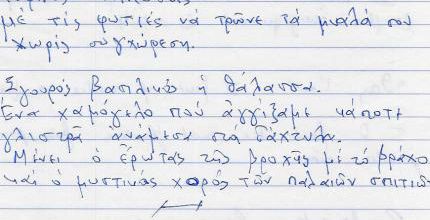 μέ τίς φωτιές νά τρῶνε τά μυαλά σου
χωρίς συγχώρεση.
Σγουρός βασιλικός ἡ θάλασσα.
Ἕνα χαμόγελο πού ἀγγίξαμε κάποτε
γλιστρᾶ ἀνάμεσα στά δάχτυλα.
Μένει ὁ ἔρωτας τῆς βροχῆς μέ τό βράχο
καί ὁ μυστικός χορός τῶν παλαιῶν σπιτιῶν